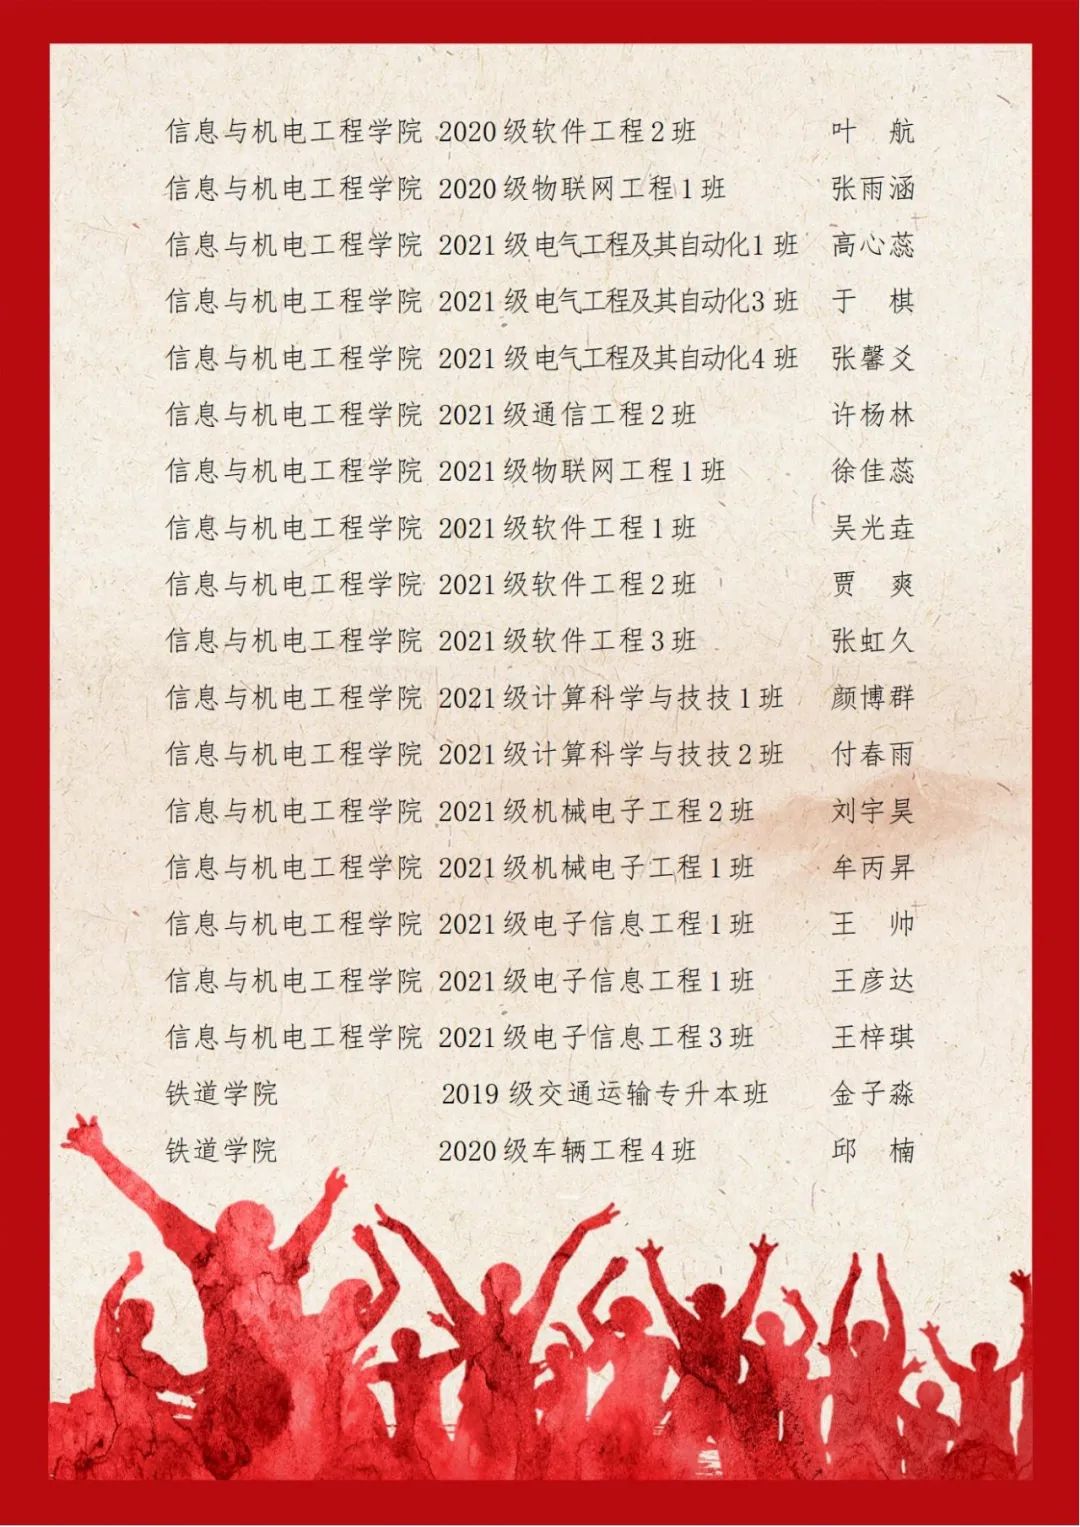 信息与机电工程学院 2020级软件工程2班 叶 航
信息与机电工程学院 2020级物联网工程1班 张雨涵
信息与机电工程学院 2021级电气工程及其自动化1班 高心蕊
信息与机电工程学院 2021级电气工程及其自动化3班 于 棋
信息与机电工程学院 2021级电气工程及其自动化4班 张馨爻
信息与机电工程学院 2021级通信工程2班 许杨林
信息与机电工程学院 2021级物联网工程1班 徐佳蕊
信息与机电工程学院 2021级软件工程1班 吴光垚
信息与机电工程学院 2021级软件工程2班 贾 爽
信息与机电工程学院 2021级软件工程3班 张虹久
信息与机电工程学院 2021级计算科学与技技1班 颜博群
信息与机电工程学院 2021级计算科学与技技2班 付春雨
信息与机电工程学院 2021级机械电子工程2班 刘宇昊
信息与机电工程学院 2021级机械电子工程1班 牟丙昇
信息与机电工程学院 2021级电子信息工程1班 王 帅
信息与机电工程学院 2021级电子信息工程1班 王彦达
信息与机电工程学院 2021级电子信息工程3班 王梓琪
铁道学院 2019级交通运输专升本班 金子淼
铁道学院 2020级车辆工程4班 邱 楠